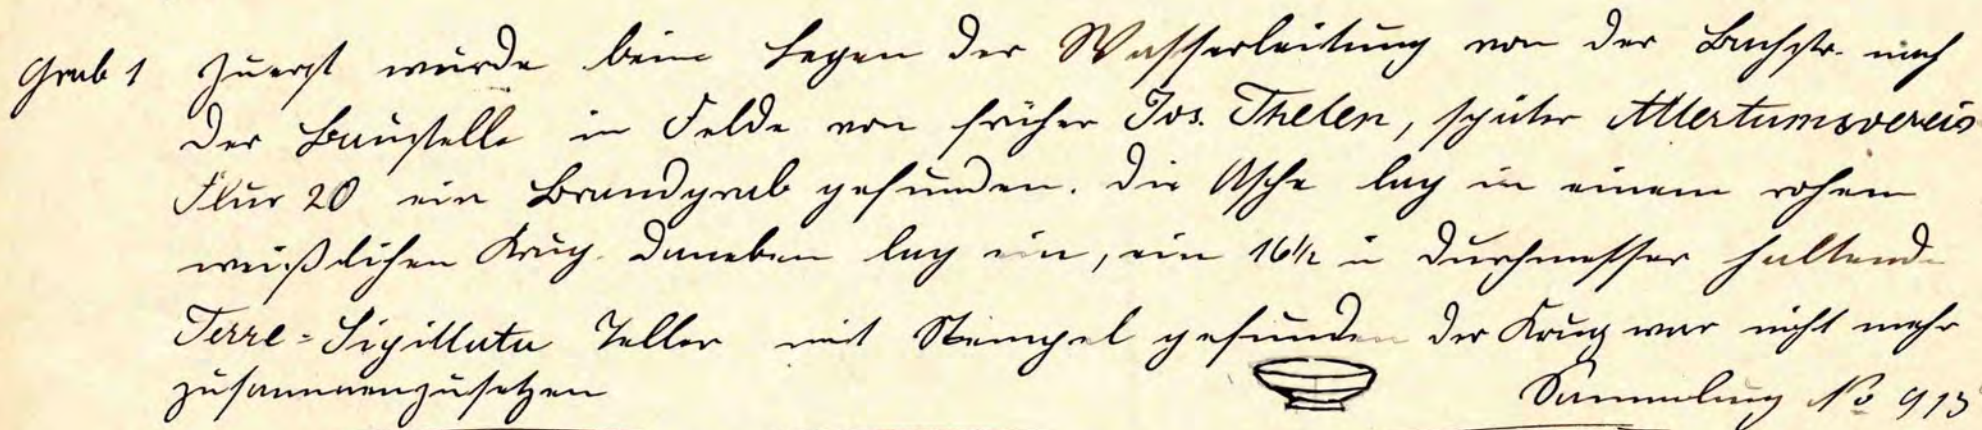 Grab 1 Zuerst wurde beim Legen der Wasserleitung von der Bachstr. nach
der Baustelle im Felde von früher Jos. Thelen, später Altertumsverein
Flur 20 ein Brandgrab gefunden. Die Asche lag in einem rohen
weißlichen Krug. Daneben lag ein, ein 16½ in Durchmesser haltend
Terre-Sigillata Teller mit Stempel gefunden der Krug war nicht mehr
zusammenzusetzen Sammlung No 913